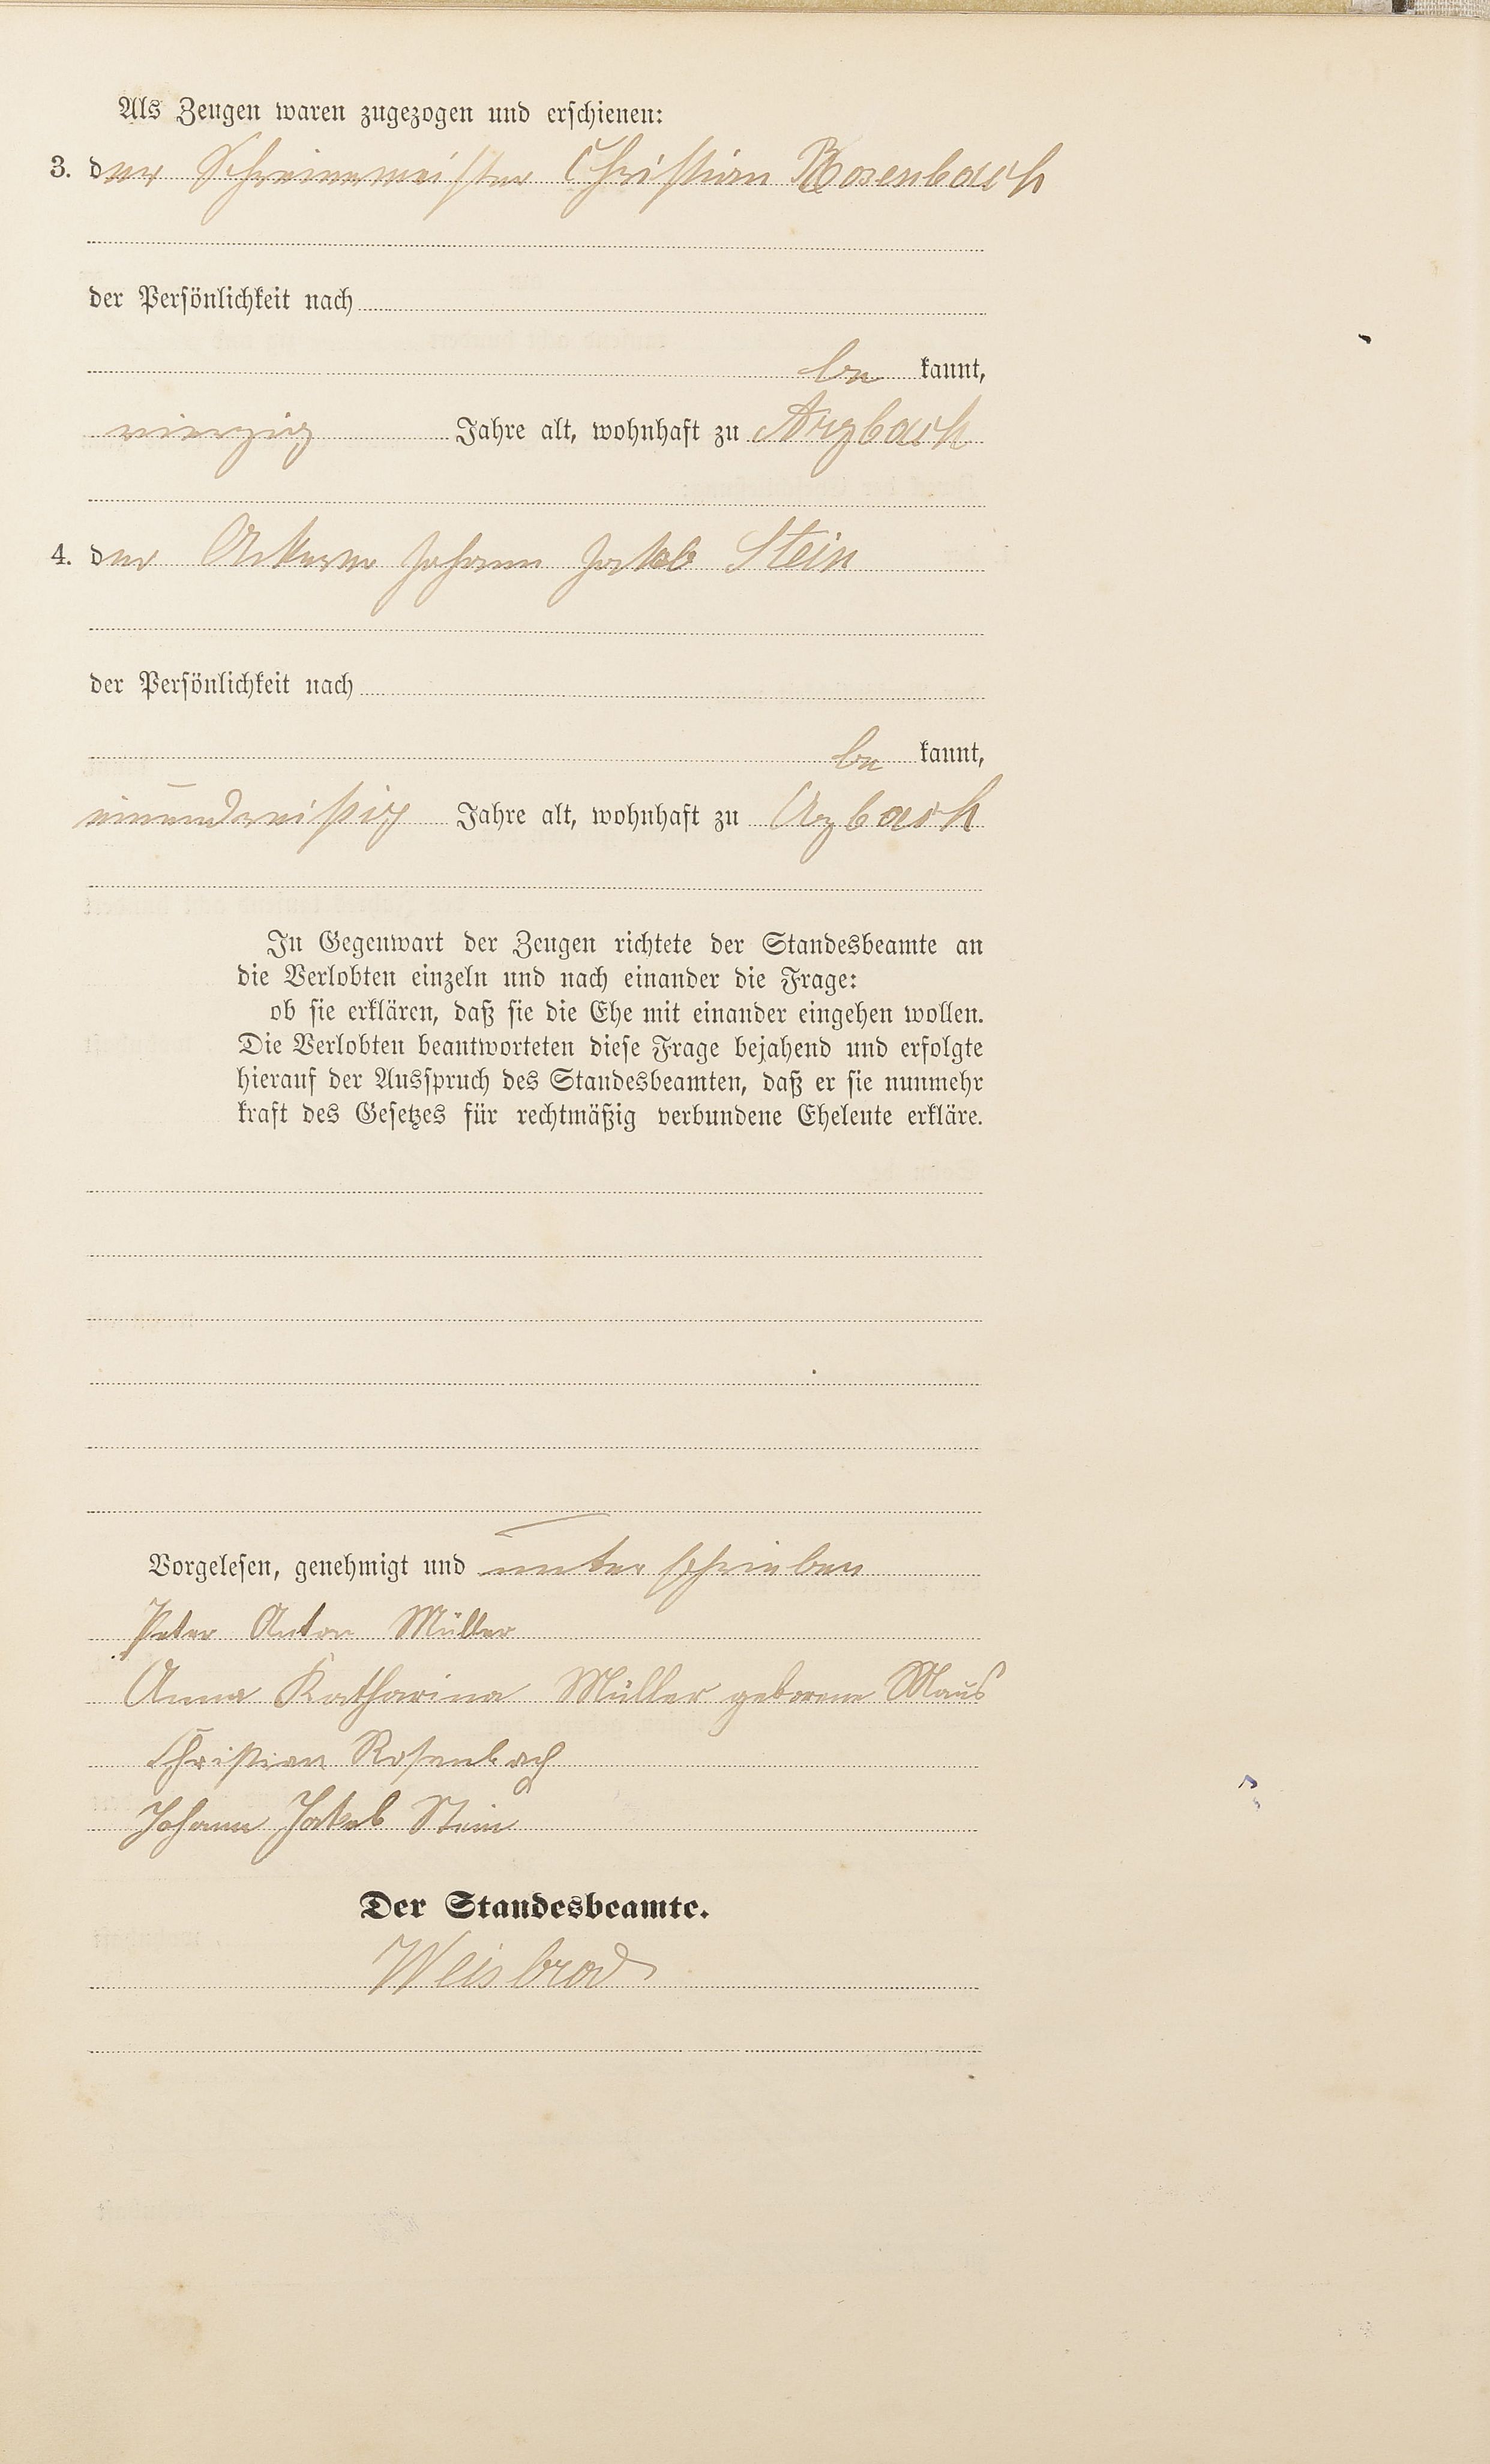 Als Zeugen waren zugezogen und erschienen:
3. der Schreinermeister Christian Rosenbach
der Persönlichkeit nach
be kannt,
vierzig Jahre alt, wohnhaft zu Arzbach
4. der Ackerer Johann Jakob Stein
der Persönlichkeit nach
be kannt,
einunddreißig Jahre alt, wohnhaft zu Arzbach
In Gegenwart der Zeugen richtete der Standesbeamte an
die Verlobten einzeln und nach einander die Frage:
ob sie erklären, daß sie die Ehe mit einander eingehen wollen.
Die Verlobten beantworteten diese Frage bejahend und erfolgte
hierauf der Ausspruch des Standesbeamten, daß er sie nunmehr
kraft des Gesetzes für rechtmäßig verbundene Eheleute erkläre.
Vorgelesen, genehmigt und unterschrieben
Peter Anton Müller
Anna Katharina Müller geborene Maus
Christian Rosenbach
Johann Jakob Stein
Der Standesbeamte.
Weisbrod